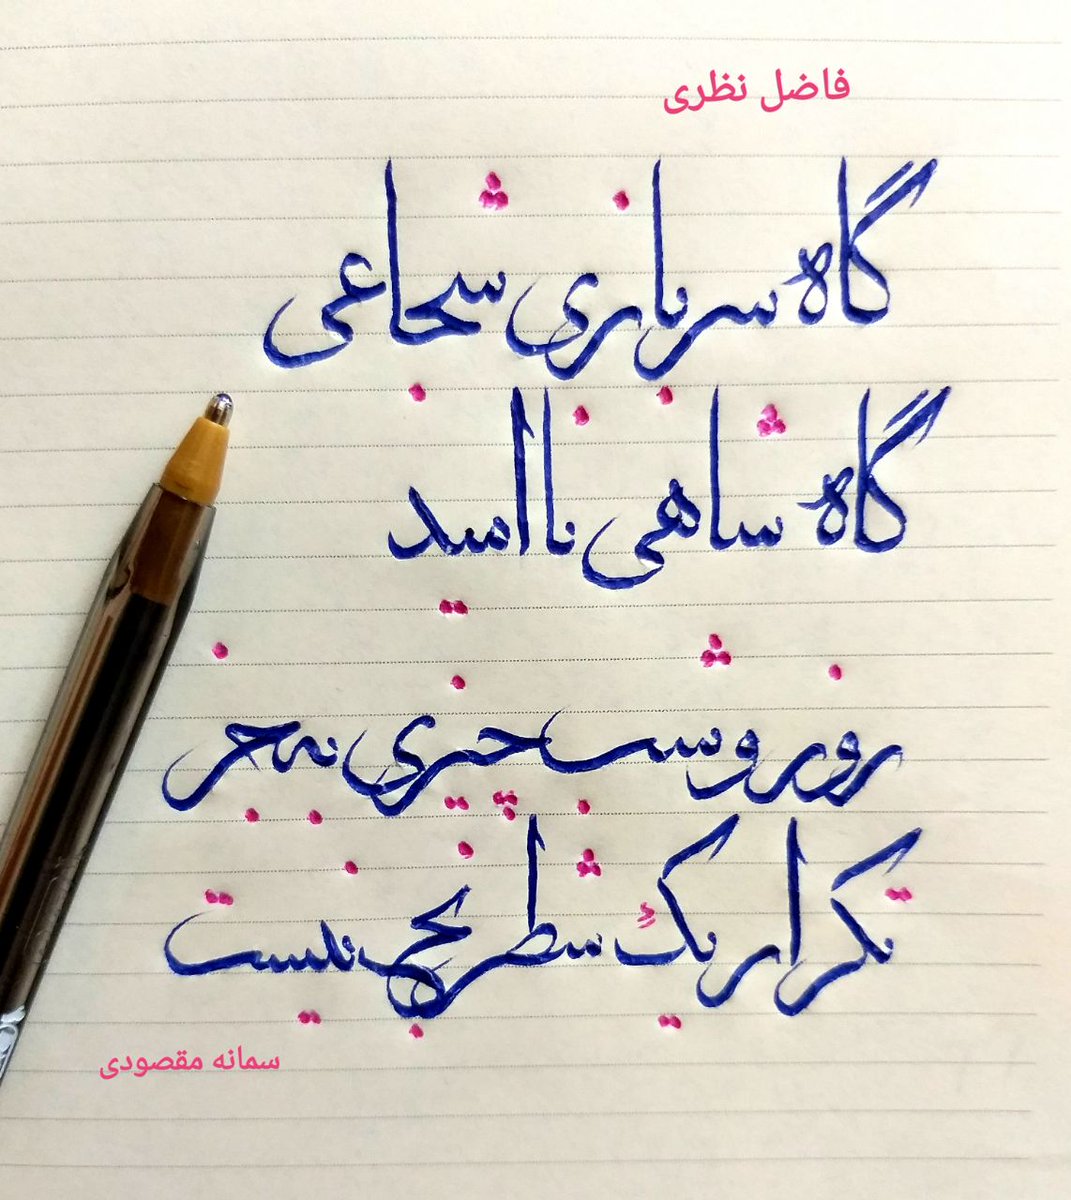 فاضل نظری
گاه سربازی شجاعی
گاه شاهی ناامید
روز و شب چیزی به جز
تکرار یک شطرنج نیست
سمانه مقصودی